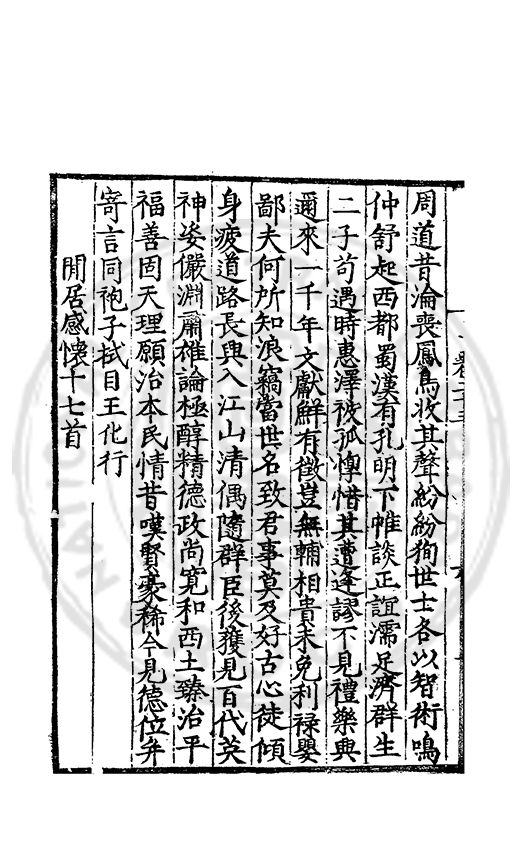 周道昔淪喪鳳鳥收其聲紛紛狥世士各以智術鳴
仲舒起西都蜀漢有孔明下帷談正誼濡足濟群生
二子苟遇時惠澤被孤惸惜其遭逢謬不見禮樂典
邇來一千年文獻鮮有徵豈無輔相貴未免利祿嬰
鄙夫何所知浪竊當世名致君事莫及好古心徒傾
身疲道路長興入江山清偶隨群臣後獲見百代英
神姿儼淵肅雄論極醇精德政尚寬和西土臻治平
福善固天理願治本民情昔嘆賢豪稀今見德位并
寄言同袍子拭目王化行
閒居感懷十七首